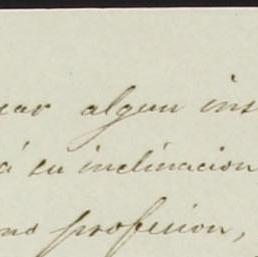 algun ins
á su inclinacion
profesion,